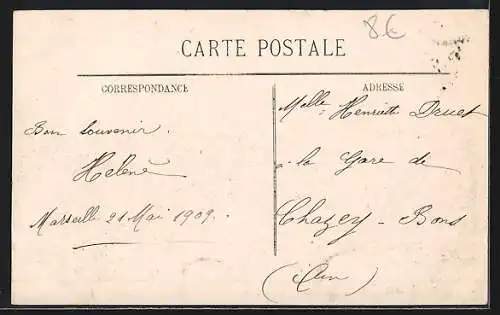 8€
CARTE POSTALE
CORRESPONDANCE
ADRESSE
Bon Souvenir.
Helene
Marseille 21 Mai 1909.
Melle Henriett Druet
a la Gare de
Chazey - Bons
(Ain)